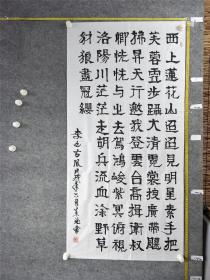 西上蓮花山迢迢見明星素手把
芙蓉虛步躡太清霓裳曳廣帶飄
拂昇天行邀我登雲台高揖衛叔
卿恍恍與之去駕鴻凌紫冥俯視
洛陽川茫茫走胡兵流血塗野草
豺狼盡冠纓
李白古風六月書